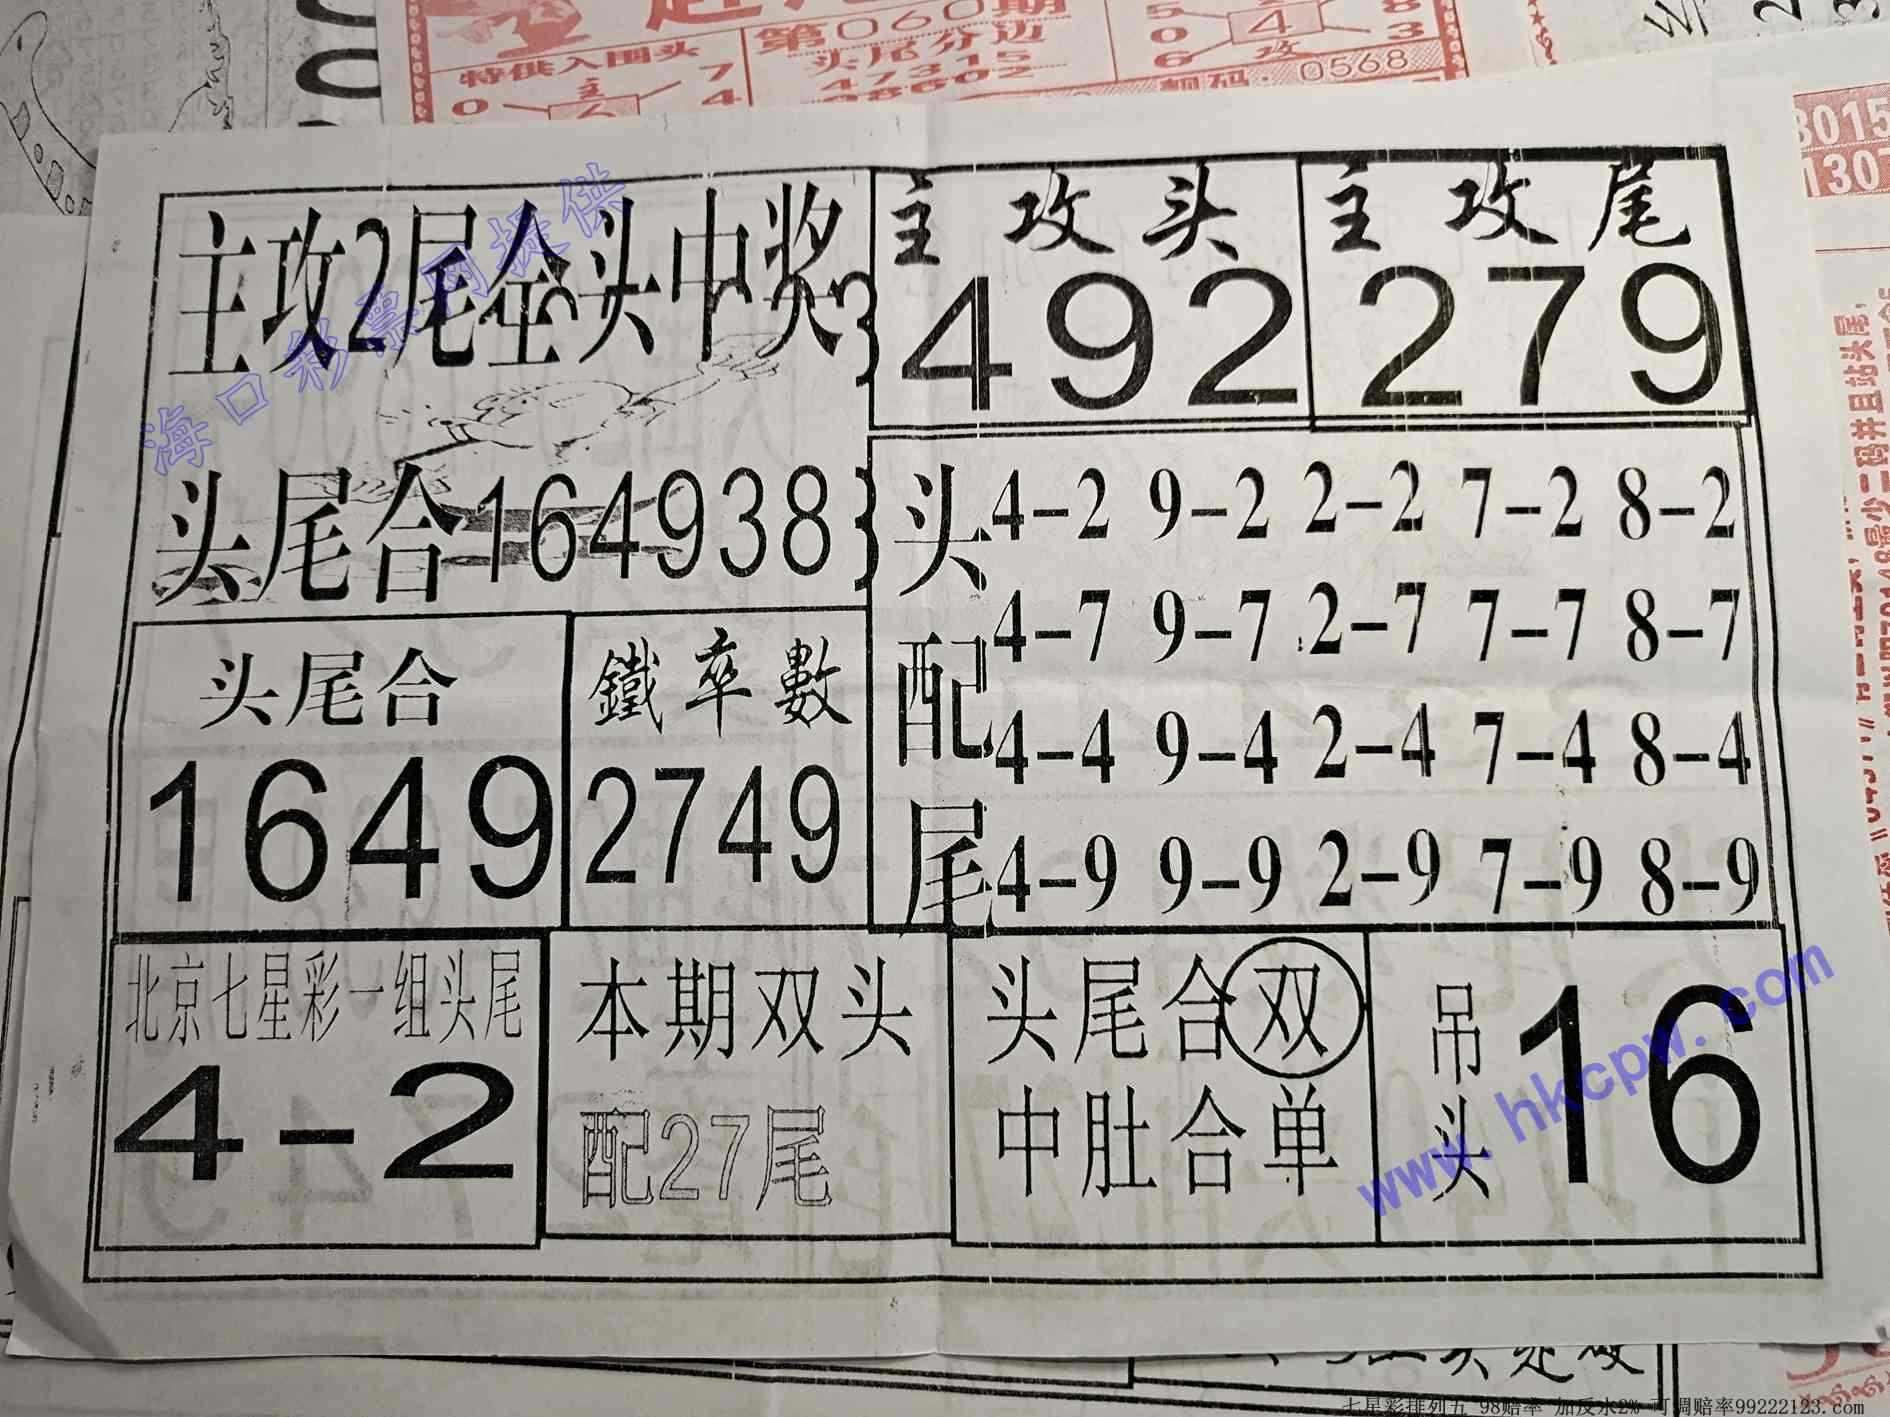 第060期
特供入围头
头尾分边
主
7
0
4
47315
08602
5
0
6
4
攻
8
3
靓码:0568
3015
主攻2尾全头中奖
主攻头
492
主攻尾
279
头尾合164938
头配尾
4-2 9-2 2-2 7-2 8-2
4-7 9-7 2-7 7-7 8-7
4-4 9-4 2-4 7-4 8-4
4-9 9-9 2-9 7-9 8-9
头尾合
1649
鐵率數
2749
北京七星彩一组头尾
4-2
本期双头
配27尾
头尾合双
中肚合单
吊头
16
海口彩票网提供
www.hkcpw.com
七星彩排列五 98赔率 加反水2% 可调赔率99222123.com